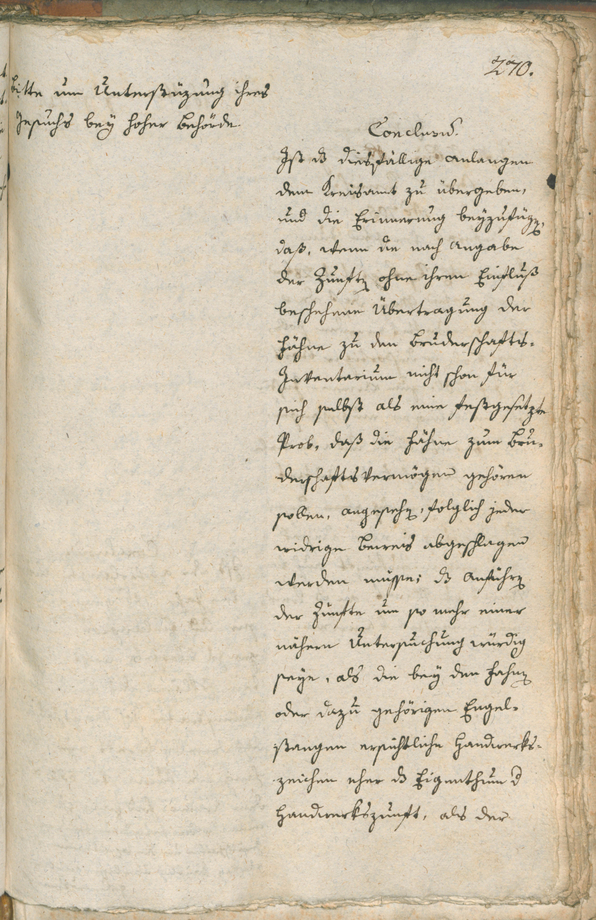 270.
bitte um Unterstüzung ihres
Gesuchs bey hoher Behörde.
Conclusũ.
Ist dß diesfällige Anlangen
dem Kreisamt zu übergeben,
und die Erinnerung beyzufügen,
daß, wenn die nach Angabe
der Zünfte ohne ihren Einfluß
beschehene Übertragung der
Fähne zu den Bruderschafts-
Inventarium nicht schon für
sich selbst als eine festgesetzte
Prob, daß die Fähne zum Bru-
derschaftsvermögen gehören
sollen, angesehen, folglich jeder
widrige Beweis abgeschlagen
werden müsse; dß Anführen
der Zünfte um so mehr einer
nähern Untersuchung würdig
seye, als die bey den Fahnen
oder dazu gehörigen Engel-
stangen ersichtliche Handwerks-
zeichen eher dß Eigenthum d
Handwerkszunft, als der